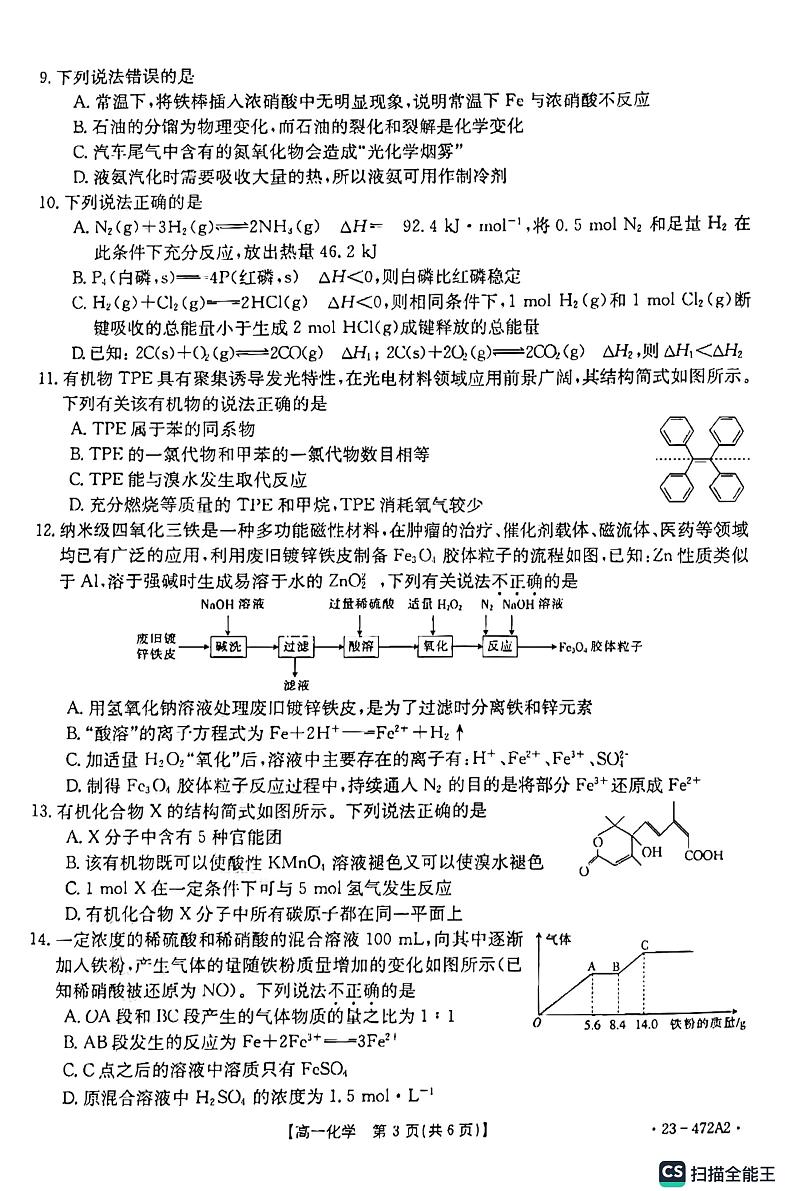 9. 下列说法错误的是
A. 常温下,将铁棒插入浓硝酸中无明显现象,说明常温下 Fe 与浓硝酸不反应
B. 石油的分馏为物理变化,而石油的裂化和裂解是化学变化
C. 汽车尾气中含有的氮氧化物会造成“光化学烟雾”
D. 液氨汽化时需要吸收大量的热,所以液氨可用作制冷剂
10. 下列说法正确的是
A. N₂(g)+3H₂(g)⇌2NH₃(g) ΔH= 92.4 kJ·mol⁻¹,将 0.5 mol N₂ 和足量 H₂ 在
此条件下充分反应,放出热量 46.2 kJ
B. P₄(白磷,s)══4P(红磷,s) ΔH<0,则白磷比红磷稳定
C. H₂(g)+Cl₂(g)══2HCl(g) ΔH<0,则相同条件下,1 mol H₂(g)和 1 mol Cl₂(g)断
键吸收的总能量小于生成 2 mol HCl(g)成键释放的总能量
D. 已知: 2C(s)+O₂(g)══2CO(g) ΔH₁; 2C(s)+2O₂(g)══2CO₂(g) ΔH₂,则 ΔH₁<ΔH₂
11. 有机物 TPE 具有聚集诱导发光特性,在光电材料领域应用前景广阔,其结构简式如图所示。
下列有关该有机物的说法正确的是
A. TPE 属于苯的同系物
B. TPE 的一氯代物和甲苯的一氯代物数目相等
C. TPE 能与溴水发生取代反应
D. 充分燃烧等质量的 TPE 和甲烷,TPE 消耗氧气较少
12. 纳米级四氧化三铁是一种多功能磁性材料,在肿瘤的治疗、催化剂载体、磁流体、医药等领域
均已有广泛的应用,利用废旧镀锌铁皮制备 Fe₃O₄ 胶体粒子的流程如图,已知:Zn 性质类似
于 Al,溶于强碱时生成易溶于水的 ZnO₂²⁻,下列有关说法不正确的是
NaOH 溶液 过量稀硫酸 适量 H₂O₂ N₂ NaOH 溶液
废旧镀
锌铁皮 碱洗 过滤 酸溶 氧化 反应 Fe₃O₄ 胶体粒子
滤液
A. 用氢氧化钠溶液处理废旧镀锌铁皮,是为了过滤时分离铁和锌元素
B. “酸溶”的离子方程式为 Fe+2H⁺══Fe²⁺+H₂↑
C. 加适量 H₂O₂“氧化”后,溶液中主要存在的离子有:H⁺、Fe²⁺、Fe³⁺、SO₄²⁻
D. 制得 Fe₃O₄ 胶体粒子反应过程中,持续通入 N₂ 的目的是将部分 Fe³⁺还原成 Fe²⁺
13. 有机化合物 X 的结构简式如图所示。下列说法正确的是
A. X 分子中含有 5 种官能团
B. 该有机物既可以使酸性 KMnO₄ 溶液褪色又可以使溴水褪色
C. 1 mol X 在一定条件下可与 5 mol 氢气发生反应
D. 有机化合物 X 分子中所有碳原子都在同一平面上
O O OH COOH
14. 一定浓度的稀硫酸和稀硝酸的混合溶液 100 mL,向其中逐渐
加入铁粉,产生气体的量随铁粉质量增加的变化如图所示(已
知稀硝酸被还原为 NO)。下列说法不正确的是
A. OA 段和 BC 段产生的气体物质的量之比为 1∶1
B. AB 段发生的反应为 Fe+2Fe³⁺══3Fe²⁺
C. C 点之后的溶液中溶质只有 FeSO₄
D. 原混合溶液中 H₂SO₄ 的浓度为 1.5 mol·L⁻¹
气体
A B C
O 5.6 8.4 14.0 铁粉的质量/g
【高一化学 第 3 页(共 6 页)】
·23-472A2·
CS 扫描全能王